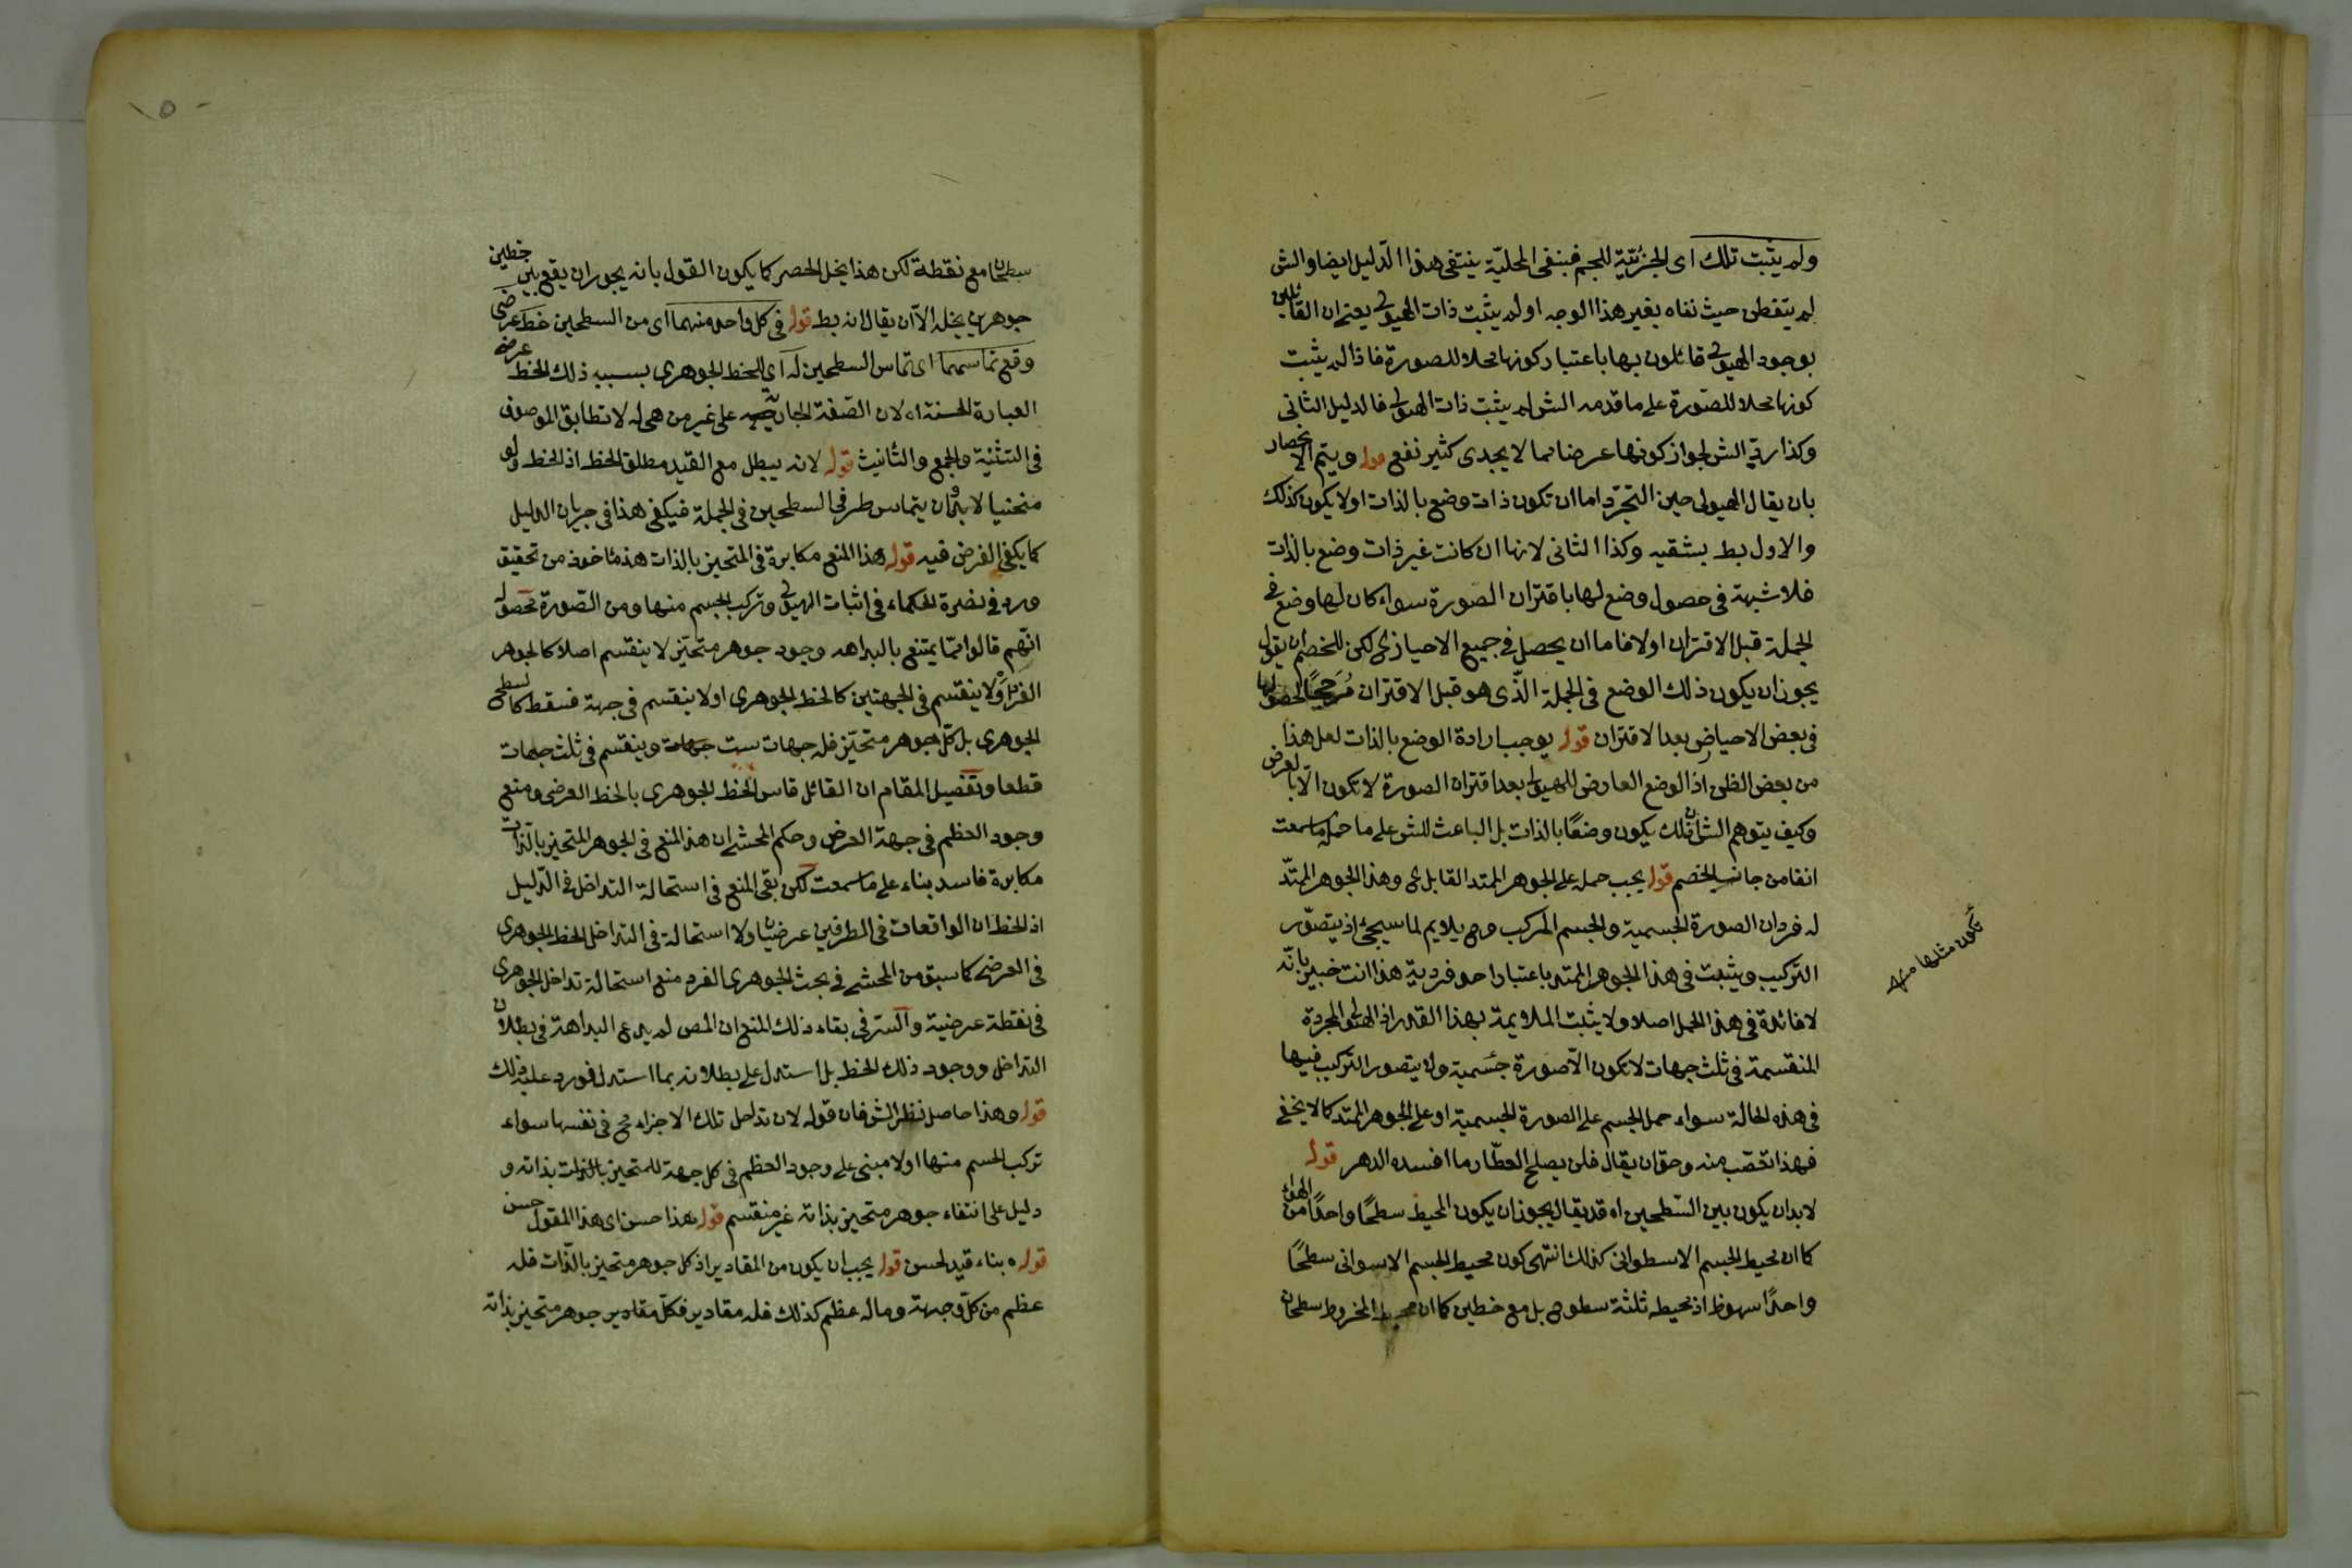 ولم يثبت تلك اى الجزئية للجسم فبنفى المحلية ينتفى هذا الدليل ايضا والش
لم يتفطن حيث نفاه بغير هذا الوجه او لم يثبت ذات الهيولى يعنى ان القائلين
بوجود الهيولى قائلون بها باعتبار كونها محلا للصورة فاذا لم يثبت
كونها محلا للصورة على ما قدمه الش لم يثبت ذات الهيولى فالدليل الثانى
وكذا رد الش لجواز كونها عرضا مما لا يجدى كثير نفع قوله ويتم الانحصار
بان يقال الهيولى حين التجرد اما ان تكون ذات وضع بالذات او لا يكون كذلك
والاول بط بشقيه وكذا الثانى لانها ان كانت غير ذات وضع بالذات
فلا شبهة فى حصول وضع لها باقتران الصورة سواء كان لها وضع فى
الجملة قبل الاقتران او لا فاما ان يحصل فى جميع الاحياز لكن للخصم ان يقول
يجوز ان يكون ذلك الوضع فى الجملة الذى هو قبل الاقتران مرجحا لحصولها
فى بعض الاحياض بعد الاقتران قوله يوجب ارادة الوضع بالذات لعل هذا
من بعض الظن اذ الوضع العارض للهيولى بعد اقتران الصورة لا يكون الا بالعرض
وكيف يتوهم الش ان ذلك يكون وضعا بالذات بل الباعث للش على ما حمله ما سمعت
انفا من جانب الخصم قوله يجب حمله على الجوهر الممتد القابل وهذا الجوهر الممتد
له فردان الصورة الجسمية والجسم المركب وح يلايم لما سيجئ اذ يتصور
التركيب ويثبت فى هذا الجوهر الممتد باعتبار احد فرديه هذا انت خبير بانه
لا فائدة فى هذا الحمل اصلا ولا يثبت الملايمة بهذا القدر اذ الهيولى المجردة
المنقسمة فى ثلث جهات لا تكون الا صورة جسمية ولا يتصور التركيب فيها
فى هذه الحالة سواء حمل الجسم على الصورة الجسمية او على الجوهر الممتد كما لا يخفى
فهذا تعصب منه وحق ان يقال فلن يصلح العطار ما افسده الدهر قوله
لابد ان يكون بين السطحين اه قد يقال يجوز ان يكون المحيط سطحا واحدا من الهواء
كما ان محيط الجسم الاسطوانى كذلك انتهى كون محيط الجسم الاسوانى سطحا
واحدا سهو ظ اذ محيطه ثلثة سطوح بل مع خطين كما ان محيط المخروط سطحان
تكون مثلها منه
سطحان مع نقطة لكن هذا يخل الحصر كما يكون القول بانه يجوز ان يقع بين خطين
جوهرين يخله الا ان يقال انه بط قوله فى كل واحد منهما اى من السطحين خط عرضى
وقع تماسهما اى تماس السطحين له اى للخط الجوهرى بسببه ذلك الخط عرضى
العبارة الحسنة اه لان الصفة الجارية على غير من هى له لا تطابق الموصوف
فى التثنية والجمع والتأنيث قوله لانه يبطل مع القيد مطلق الخط اذ الخط ولو
منحنيا لابد وان يتماس طرفى السطحين فى الجملة فيكفى هذا فى جريان الدليل
كما يكفى الفرض فيه قوله هذا المنع مكابرة فى المتحيز بالذات هذا مأخوذ من تحقيق
ورد فى نصرة الحكماء فى اثبات الهيولى وتركب الجسم منها ومن الصورة محصوله
انهم قالوا مما يمتنع بالبداهه وجود جوهر متحيز لا ينقسم اصلا كالجوهر
الفرد او لا ينقسم فى الجهتين كالخط الجوهرى او لا ينقسم فى جهة فقط كالسطح
الجوهرى بل كل جوهر متحيز فله جهات ست جهات وينقسم فى ثلث جهات
قطعا وتفصيل المقام ان القائل قاس الخط الجوهرى بالخط العرضى ومنع
وجود العظم فى جهة العرض وحكم المحشى ان هذا المنع فى الجوهر المتحيز بالذات
مكابرة فاسد بناء على ما سمعت لكن بقى المنع فى استحالة التداخل فى الدليل
اذ الخطان الواقعان فى الطرفين عرضيان ولا استحالة فى التداخل الخط الجوهرى
فى العرضى كما سبق من المحشى فى بحث الجوهرى الفرد منع استحالة تداخل الجوهرى
فى نقطة عرضية والسر فى بقاء ذلك المنع ان المص لم يدع البداهة فى بطلان
التداخل ووجود ذلك الخط بل استدل على بطلانه بما استدل فورد عليه ذلك
قوله وهذا حاصل نظر الش فان قوله لان تداخل تلك الاجزاء مح فى نفسها سواء
تركب الجسم منها او لا مبنى على وجود العظم فى كل جهة للمتحيز بالذات بذاته و
دليل على انتفاء جوهر متحيز بذاته غير منقسم قوله هذا حسن اى هذا المقول حسن
قوله بناء قيد لحسن قوله يجب ان يكون من المقادير اذ كل جوهر متحيز بالذات فله
عظم من كل وجهة وما له عظم كذلك فله مقادير فكل مقادير جوهر متحيز بذاته